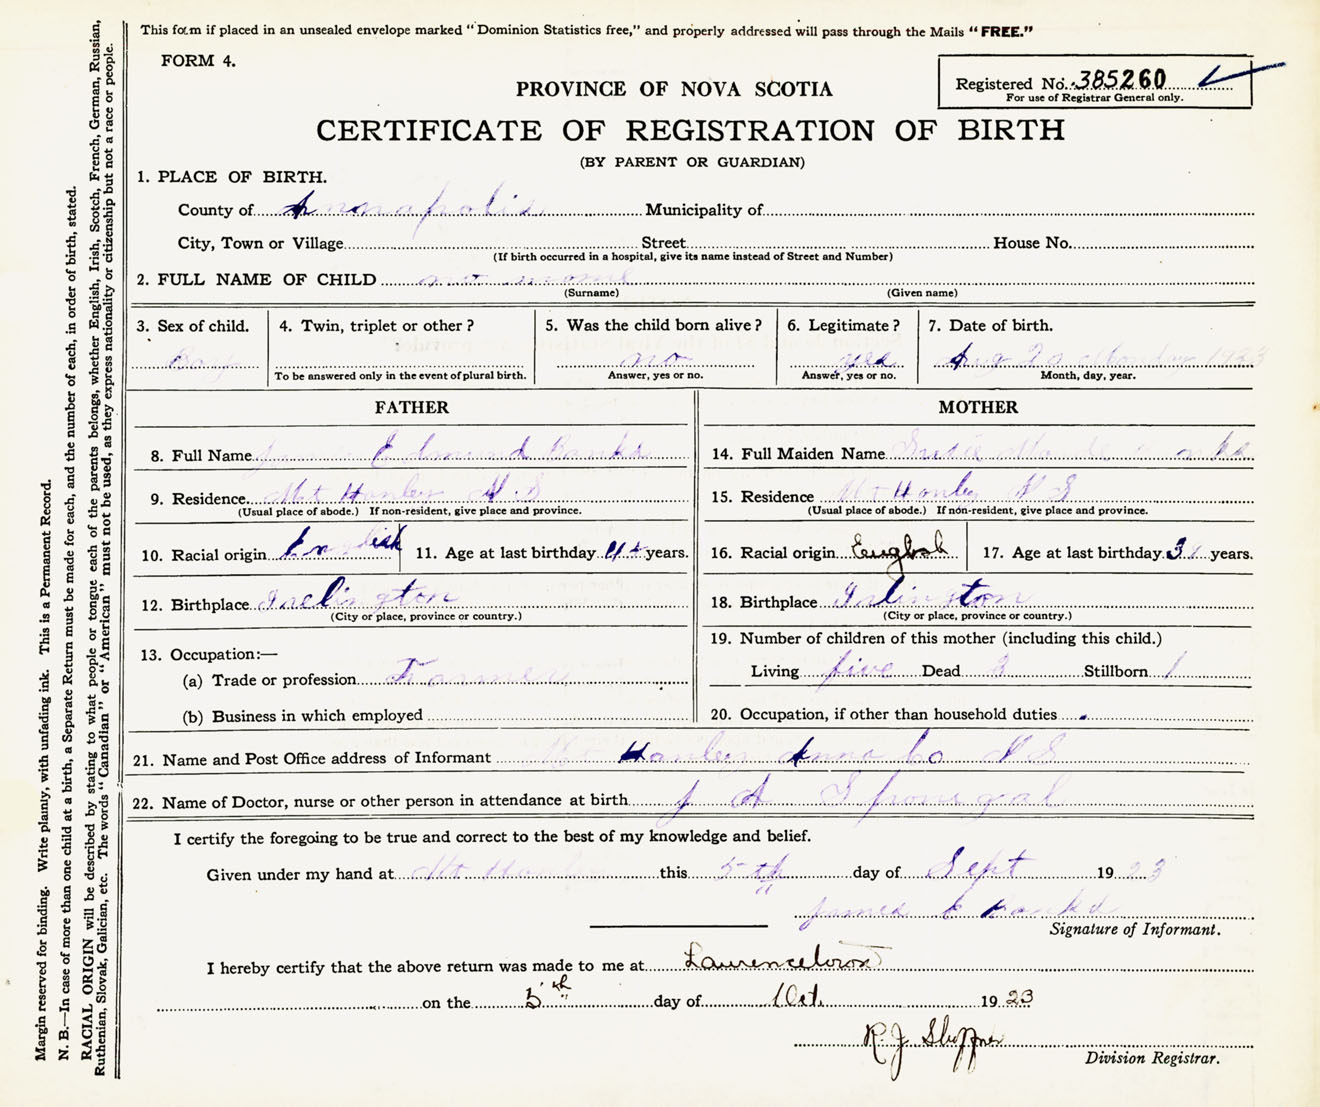 This form if placed in an unsealed envelope marked "Dominion Statistics free," and properly addressed will pass through the Mails "FREE."
FORM 4.
Registered No. 385260
For use of Registrar General only.
PROVINCE OF NOVA SCOTIA
CERTIFICATE OF REGISTRATION OF BIRTH
(BY PARENT OR GUARDIAN)
1. PLACE OF BIRTH.
County of Annapolis Municipality of
City, Town or Village Street House No.
(If birth occurred in a hospital, give its name instead of Street and Number)
2. FULL NAME OF CHILD no name
(Surname) (Given name)
3. Sex of child. 4. Twin, triplet or other? 5. Was the child born alive? 6. Legitimate? 7. Date of birth.
Boy no yes Aug 20 Monday 1923
To be answered only in the event of plural birth. Answer, yes or no. Answer, yes or no. Month, day, year.
FATHER MOTHER
8. Full Name Edmund Banks 14. Full Maiden Name Susie
9. Residence Mt Hanley N.S 15. Residence Mt Hanley N S
(Usual place of abode.) If non-resident, give place and province. (Usual place of abode.) If non-resident, give place and province.
10. Racial origin English 11. Age at last birthday years. 16. Racial origin English 17. Age at last birthday years.
12. Birthplace Inclington 18. Birthplace Inlington
(City or place, province or country.) (City or place, province or country.)
13. Occupation:— 19. Number of children of this mother (including this child.)
(a) Trade or profession Farmer Living five Dead 3 Stillborn 1
(b) Business in which employed 20. Occupation, if other than household duties
21. Name and Post Office address of Informant Mt Hanley Anna Co N S
22. Name of Doctor, nurse or other person in attendance at birth J A Sponegal
I certify the foregoing to be true and correct to the best of my knowledge and belief.
Given under my hand at Mt Hanley this 5th day of Sept 1923
James E Banks
Signature of Informant.
I hereby certify that the above return was made to me at Laurencetown
on the 5th day of Oct. 1923
R. J. Shaffner
Division Registrar.
Margin reserved for binding. Write plainly, with unfading ink. This is a Permanent Record.
N. B.—In case of more than one child at a birth, a Separate Return must be made for each, and the number of each, in order of birth, stated.
RACIAL ORIGIN will be described by stating to what people or tongue each of the parents belongs, whether English, Irish, Scotch, French, German, Russian,
Ruthenian, Slovak, Galician, etc. The words "Canadian" or "American" must not be used, as they express nationality or citizenship but not a race or people.